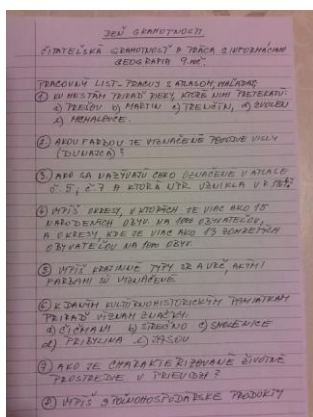 DEŇ GRAMOTNOSTI
ČITATEĽSKÁ GRAMOTNOSŤ A PRÁCA S INFORMÁCIAMI
GEOGRAFIA 9. roč.
PRACOVNÝ LIST - PRACUJ S ATLASOM,
① KU MESTÁM PRIRAĎ RIEKY, KTORÉ NIMI PRETEKAJÚ:
a) PREŠOV b) MARTIN c) TRENČÍN, d) ZVOLEN
e) MICHALOVCE.
② AKOU FARBOU JE VYZNAČENÉ POVODIE VISLY
(DUNAJCA)?
③ AKO SA NAZÝVAJÚ CHKO OZNAČENÉ V ATLASE
Č. 5, Č. 7 A KTORÁ VZNIKLA V R.
④ VYPÍŠ OKRESY, V KTORÝCH JE VIAC AKO 15
NARODENÝCH OBYV. NA 1000 OBYVATEĽOV,
A OKRESY, KDE JE VIAC AKO 13 ZOMRETÝCH
OBYVATEĽOV NA 1000 OBYV.
⑤ VYPÍŠ KRAJINNÉ TYPY SR A URČ, AKÝMI
FARBAMI SÚ VYZNAČENÉ
⑥ K DANÝM KULTÚRNOHISTORICKÝM PAMIATKAM
PRIRAĎ VÝZNAM ZNAČKY:
a) ČIČMANY b) STREČNO c) SMOLENICE
d) PRIBYLINA e) JASOV
⑦ AKO JE CHARAKTERIZOVANÉ ŽIVOTNÉ
PROSTREDIE V PRIEVIDZI?
⑧ VYPÍŠ POĽNOHOSPODÁRSKE PRODUKTY